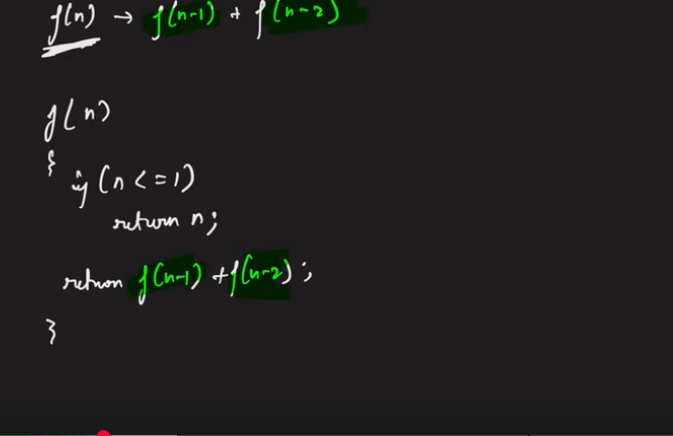 f(n) → f(n-1) + f(n-2)
f(n)
{
if (n <= 1)
return n;
return f(n-1) + f(n-2);
}